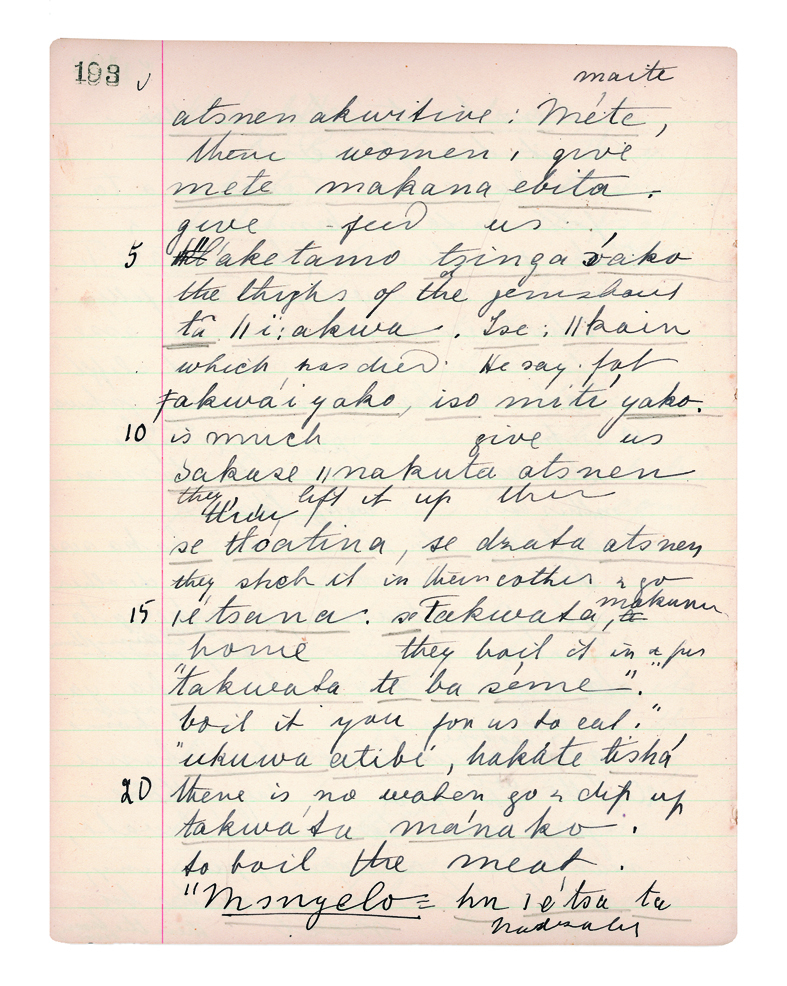 193
maite
atsnen akwitive : Méte,
them women, give
mete makana ebita.
give feed us
5 aketamo tzinga ako
the thighs of the gemsbout
tā ǁ i: akwa. Ise: ǁkain
which has died. He say. fat
ǂakwá i yako, iso miti yako.
10 is much give us
Sakase ǁnakuta atsnen
they lift it up their
se tloatina, se dzata atsnen
they stick it in their & go
15 ié tsana. se Takwata, makanu
home they boil it in a pot
"takwata te ba séme".
boil it you for us to eat."
"ukuwa atibé, hakáte tishá
20 there is no waten go & dip up
takwáta mánako.
to boil the meat.
"Msnyelo = hn ié tsa ta